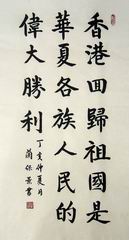 香港回歸祖國是
華夏各族人民的
偉大勝利
丁亥仲夏月
蘭保景書